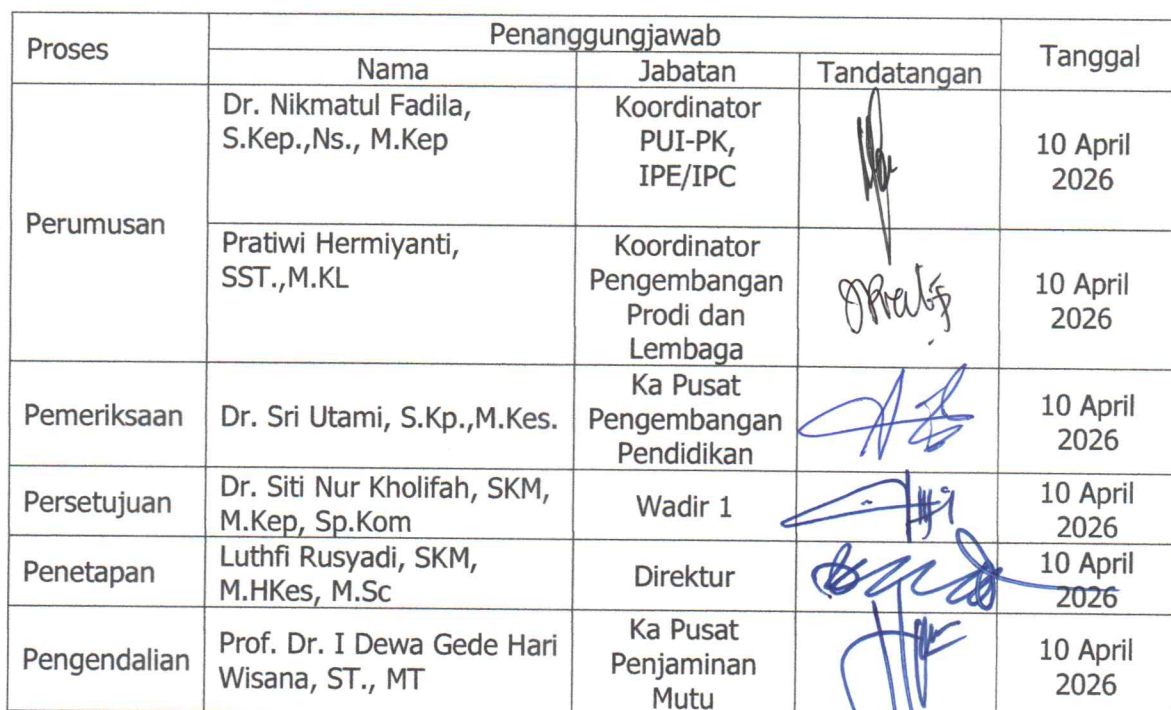 Proses
Penanggungjawab
Tanggal
Nama
Jabatan
Tandatangan
Perumusan
Dr. Nikmatul Fadila,
S.Kep.,Ns., M.Kep
Koordinator
PUI-PK,
IPE/IPC
10 April
2026
Pratiwi Hermiyanti,
SST.,M.KL
Koordinator
Pengembangan
Prodi dan
Lembaga
10 April
2026
Pemeriksaan
Dr. Sri Utami, S.Kp.,M.Kes.
Ka Pusat
Pengembangan
Pendidikan
10 April
2026
Persetujuan
Dr. Siti Nur Kholifah, SKM,
M.Kep, Sp.Kom
Wadir 1
10 April
2026
Penetapan
Luthfi Rusyadi, SKM,
M.HKes, M.Sc
Direktur
10 April
2026
Pengendalian
Prof. Dr. I Dewa Gede Hari
Wisana, ST., MT
Ka Pusat
Penjaminan
Mutu
10 April
2026